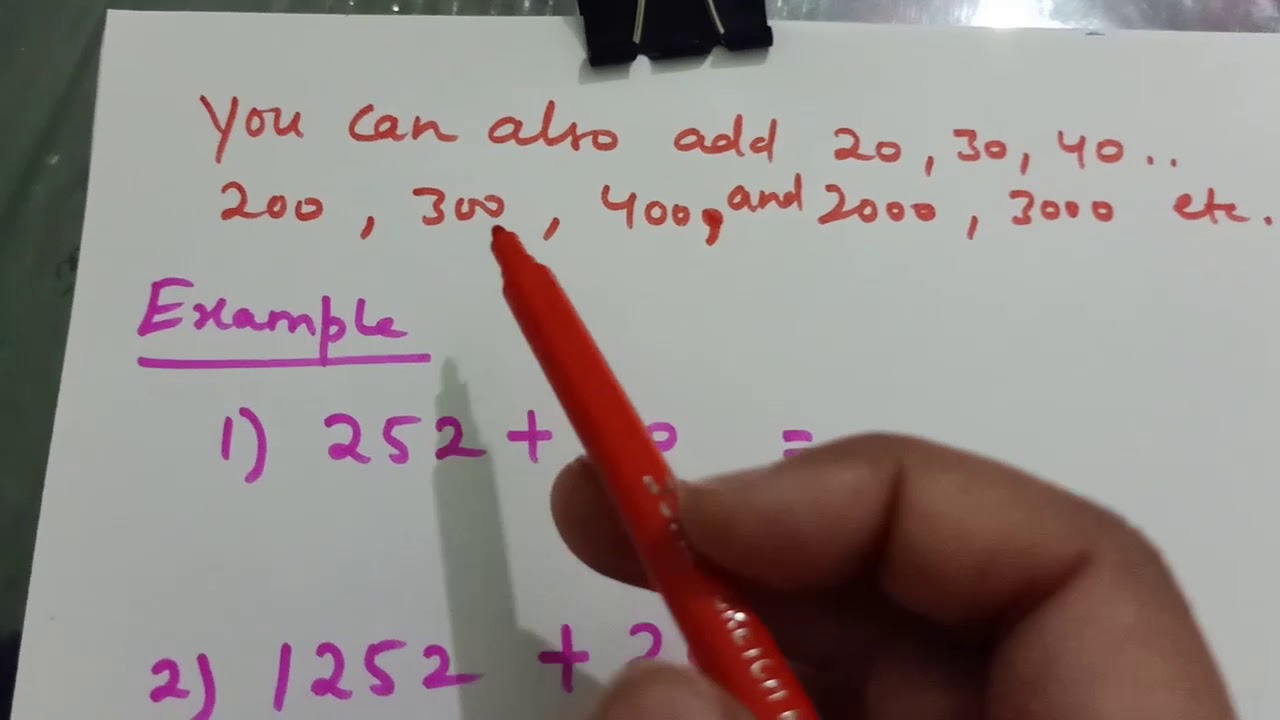 You can also add 20, 30, 40..
200, 300, 400, and 2000, 3000 etc.
Example
1) 252 + =
2) 1252 +